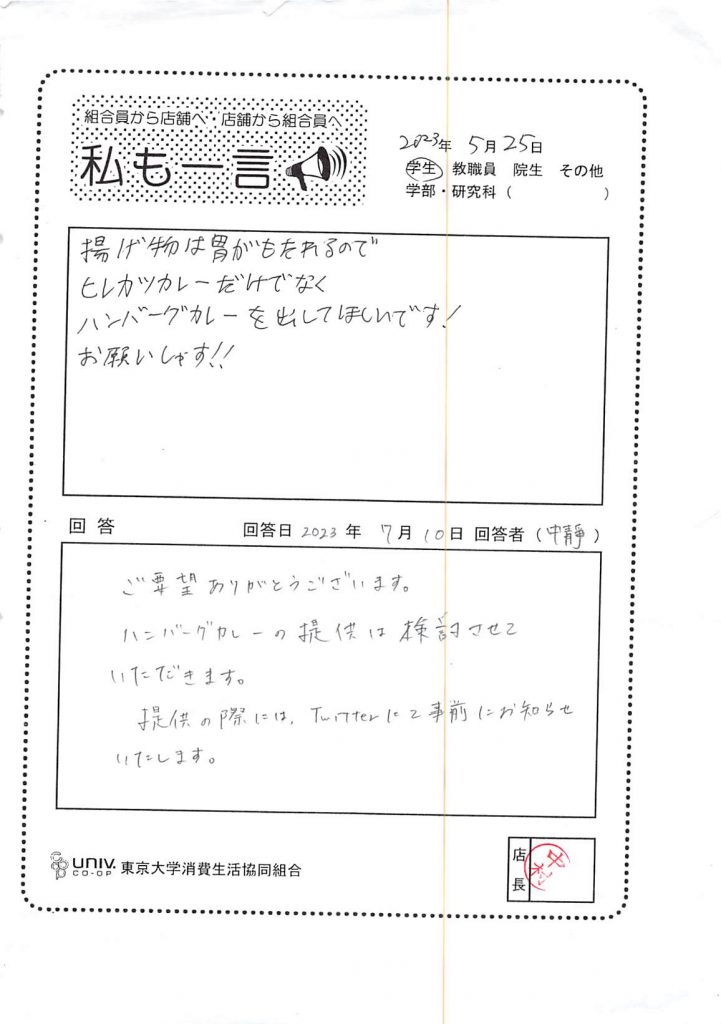 組合員から店舗へ・店舗から組合員へ
私も一言
2023年 5月25日
学生 教職員 院生 その他
学部・研究科( )
揚げ物は胃がもたれるので
ヒレカツカレーだけでなく
ハンバーグカレーを出してほしいです!
お願いしゃす!!
回答 回答日 2023年 7月10日 回答者(中靜)
ご要望ありがとうございます。
ハンバーグカレーの提供は検討させて
いただきます。
提供の際には、Twitterにて事前にお知らせ
いたします。
UNIV. CO-OP 東京大学消費生活協同組合
店長